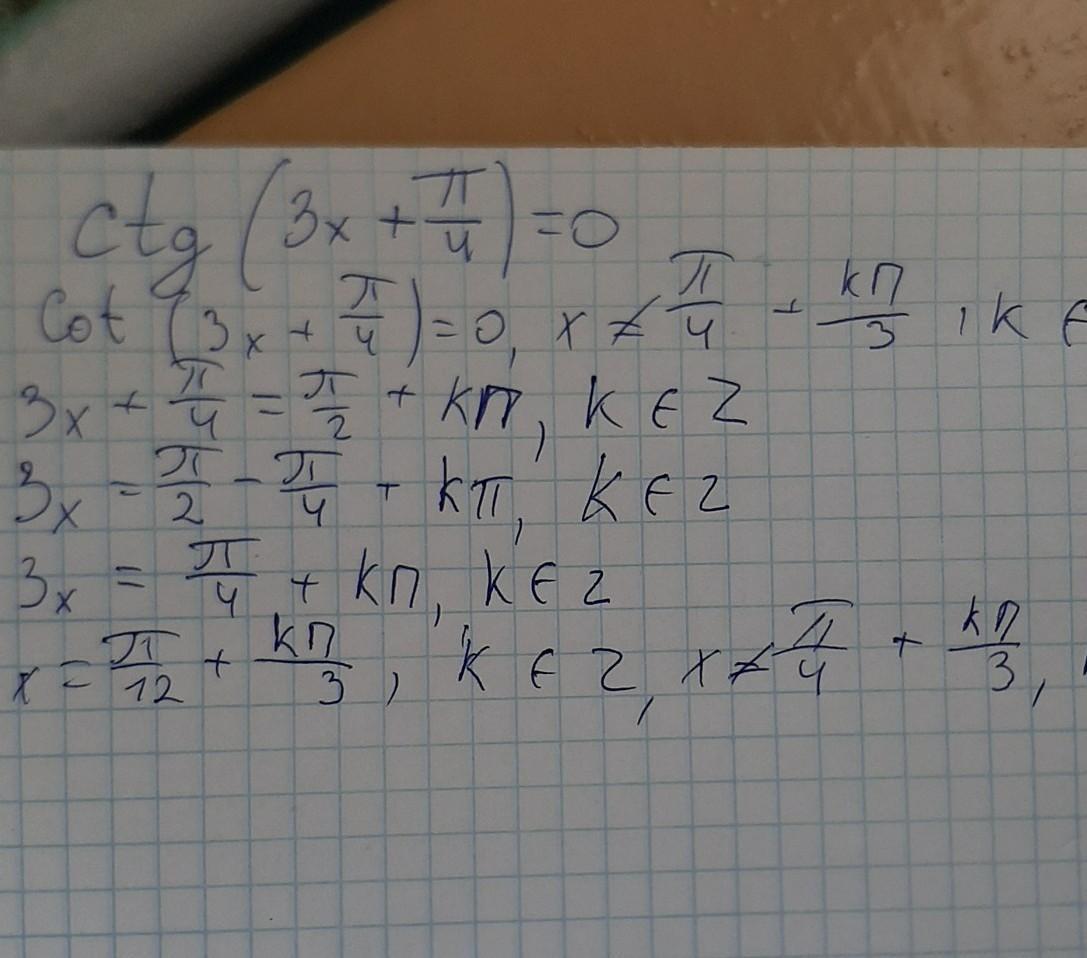 ctg (3x + π/4) = 0
Cot (3x + π/4) = 0, x ≠ π/4 + kπ/3, k ∈
3x + π/4 = π/2 + kπ, k ∈ Z
3x = π/2 - π/4 + kπ, k ∈ Z
3x = π/4 + kπ, k ∈ Z
x = π/12 + kπ/3, k ∈ Z, x ≠ π/4 + kπ/3,